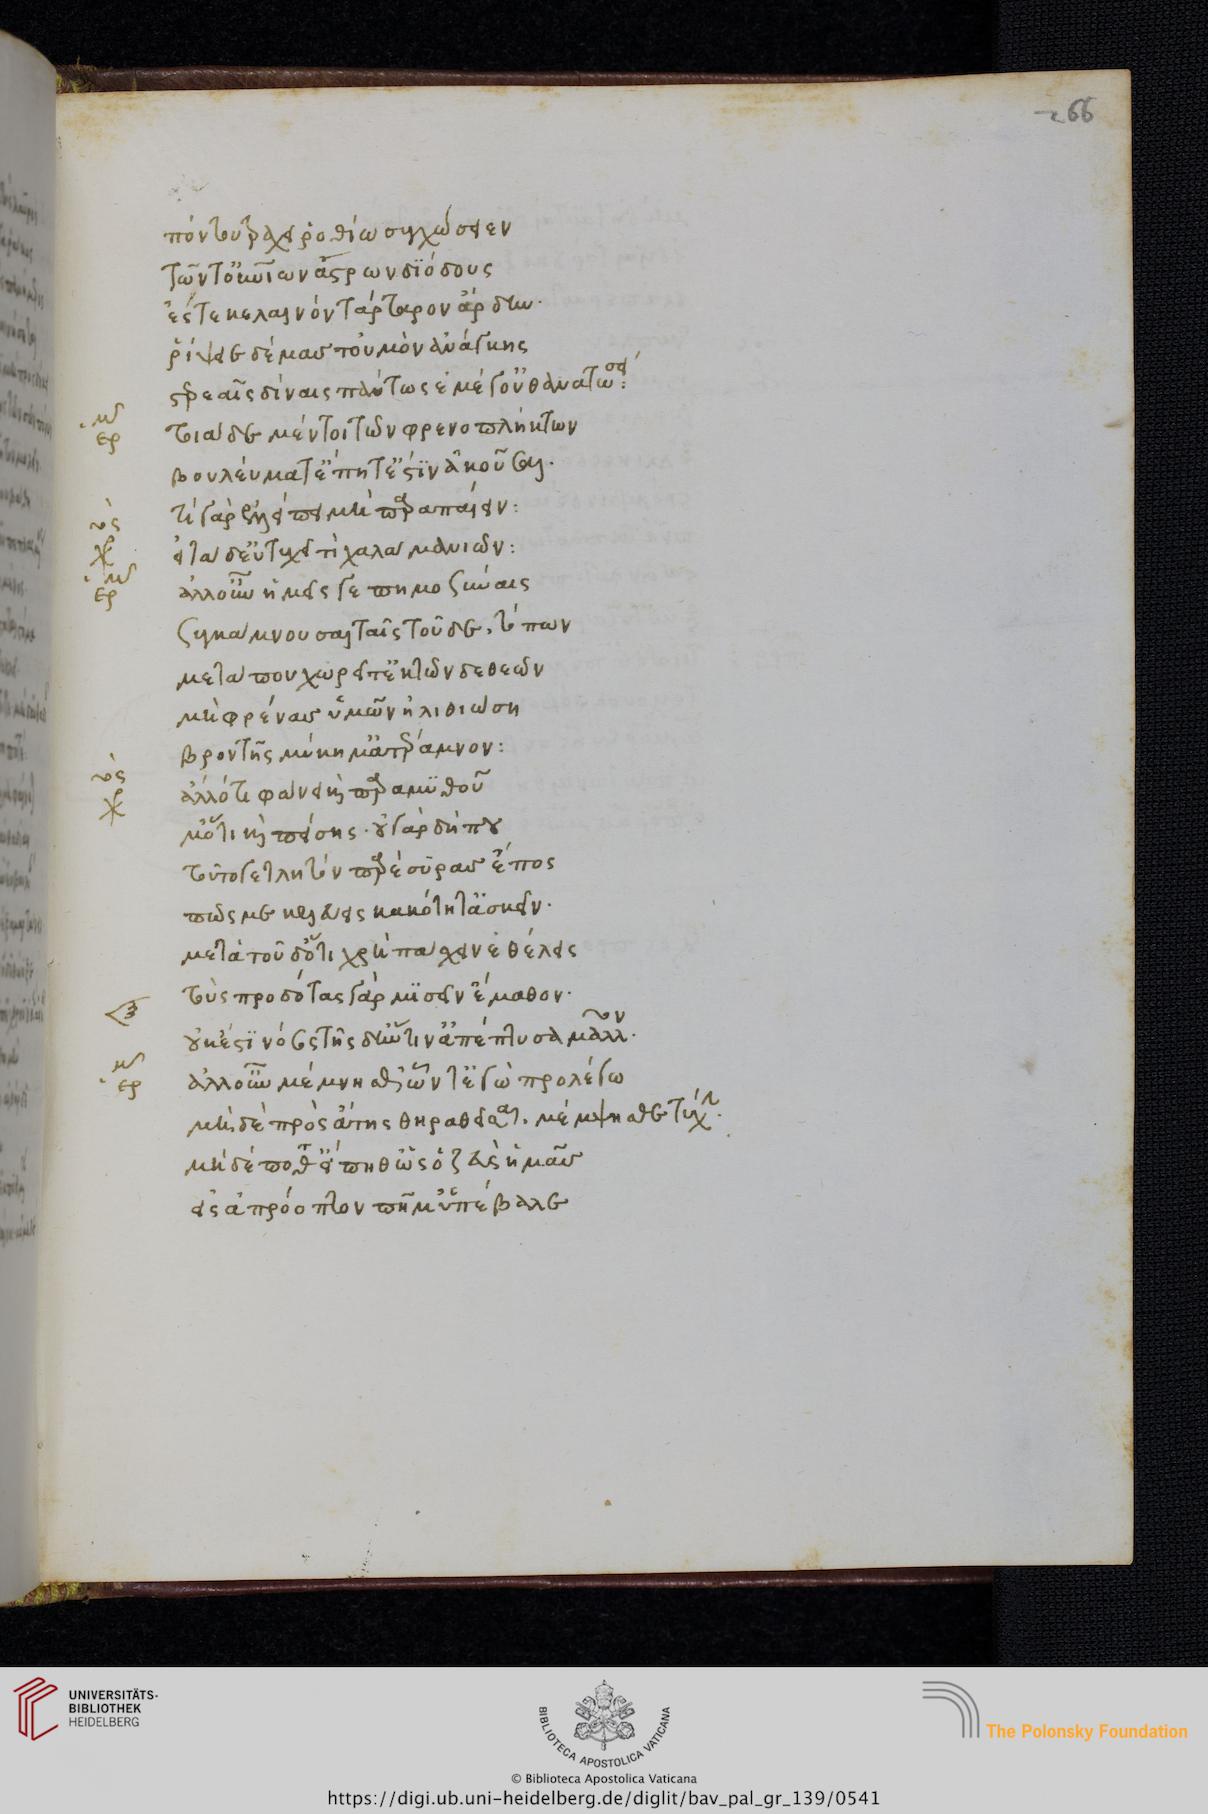 266
πόντου τραχεῖ ῥοθίω συγχώσειεν
τῶν τ' οὐρανίων ἄστρων διόδους
ἔς τε κελαινὸν τάρταρον ἄρδην.
ῥίψειε δέμας τοὐμὸν ἀνάγκης
στερραῖς δίναις πάντως ἐμέ γ' οὐ θανατώσει:
ἑρμ τοιάδε μέντοι τῶν φρενοπλήκτων
βουλεύματ' ἔπη τ' ἔστιν ἀκοῦσαι.
τί γὰρ ἐλλείπει μὴ παραπαίειν:
εἰ τάδ' εὐτυχεῖ τὶ χαλᾶ μανιῶν:
ἑρμ ἀλλ' οὖν ὑμεῖς γε πημοσύναις
συγκάμνουσαι ταῖς τοῦδε. τόπων
μετά που χωρεῖτ' ἐκ τῶνδε θεῶν
μὴ φρένας ὑμῶν ἠλιθιώση
βροντῆς μύκημ' ἀτέραμνον:
χο ἄλλό τι φώνει καὶ παραμυθοῦ
μ' ὅτι καὶ πείσεις. οὐ γὰρ δή που
τοῦτό γε τλητὸν παρέσυρας ἔπος
πῶς με κελεύεις κακότητ' ἀσκεῖν.
μετὰ τοῦδ' ὅτι χρὴ πάσχειν ἐθέλω
τοὺς προδότας γὰρ μισεῖν ἔμαθον.
οὐκ ἔστι νόσος τῆσδ' ἥντιν' ἀπέπτυσα μᾶλλον.
ἑρμ ἀλλ' οὖν μέμνησθ' ἅντ' ἐγὼ προλέγω
μηδὲ πρὸς ἄτης θηραθεῖσαι. μέμψησθε τύχην.
μηδέ ποτ' εἴπηθ' ὡς ὁ ζεὺς ὑμᾶς
εἰς ἀπρόοπτον πῆμ' ὑπέβαλε
UNIVERSITÄTS-
BIBLIOTHEK
HEIDELBERG
BIBLIOTECA APOSTOLICA VATICANA
The Polonsky Foundation
© Biblioteca Apostolica Vaticana
https://digi.ub.uni-heidelberg.de/diglit/bav_pal_gr_139/0541